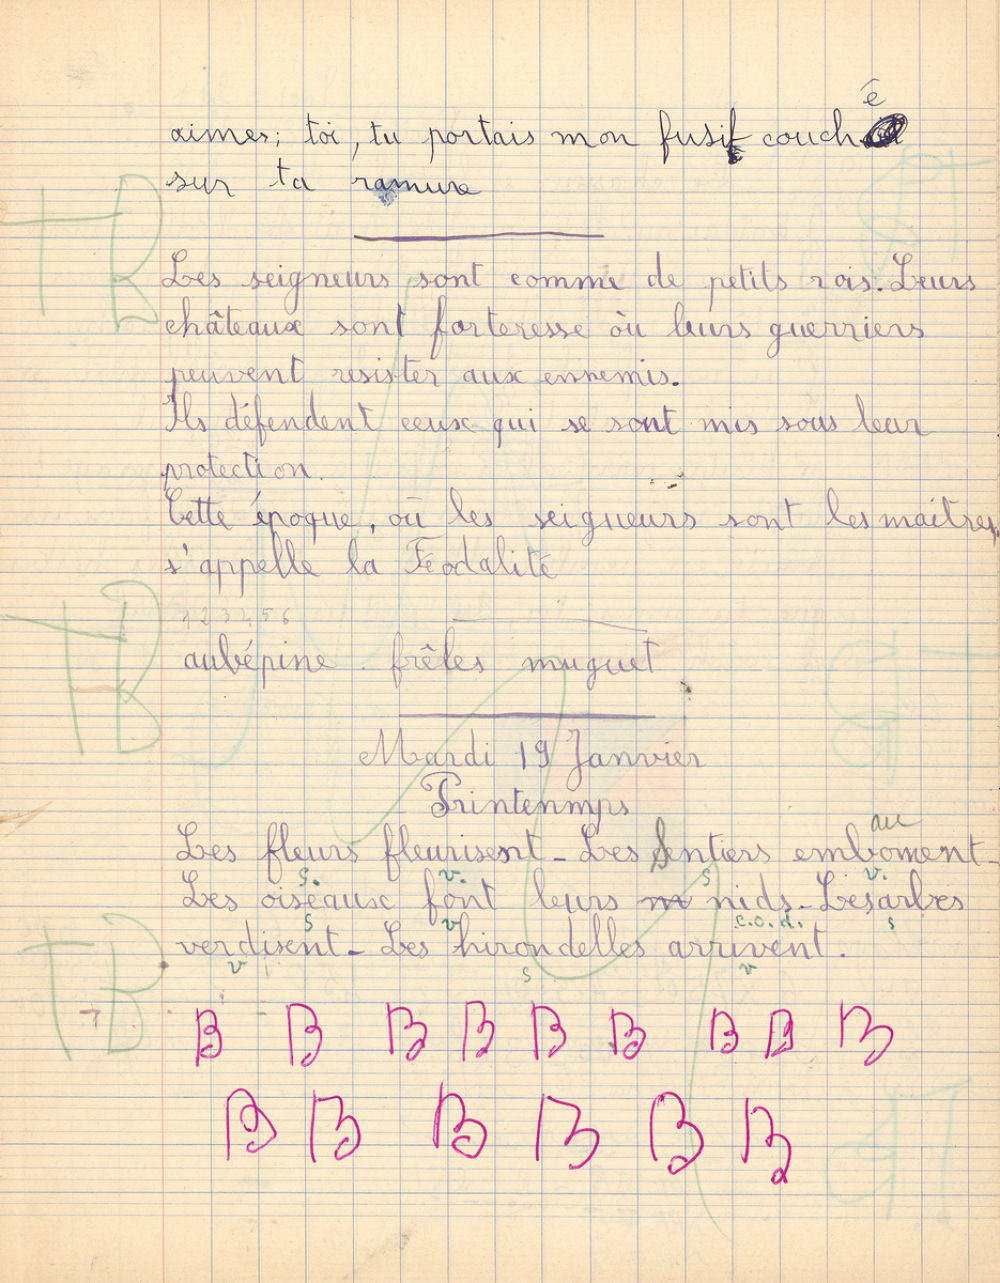 é
aimes; toi, tu portais mon fusil couch
sur ta ramure
TB
Les seigneurs sont comme de petits rois. Leurs
châteaux sont forteresse où leurs guerriers
peuvent resister aux ennemis.
Ils défendent ceux qui se sont mis sous leur
protection.
Cette époque, où les seigneurs sont les maitres,
s'appelle la Féodalité
1 2 3 4 5 6
TB
aubépine. frêles muguet
Mardi 19 Janvier
Printenmps
au
Les fleurs fleurisent - Les Sentiers emboment -
s. v. s v.
Les oiseaux font leurs m nids - Les arbres
s v c.o.d. s
TB
verdisent - Les hirondelles arrivent.
v s v
B B B B B B B B B
B B B B B B